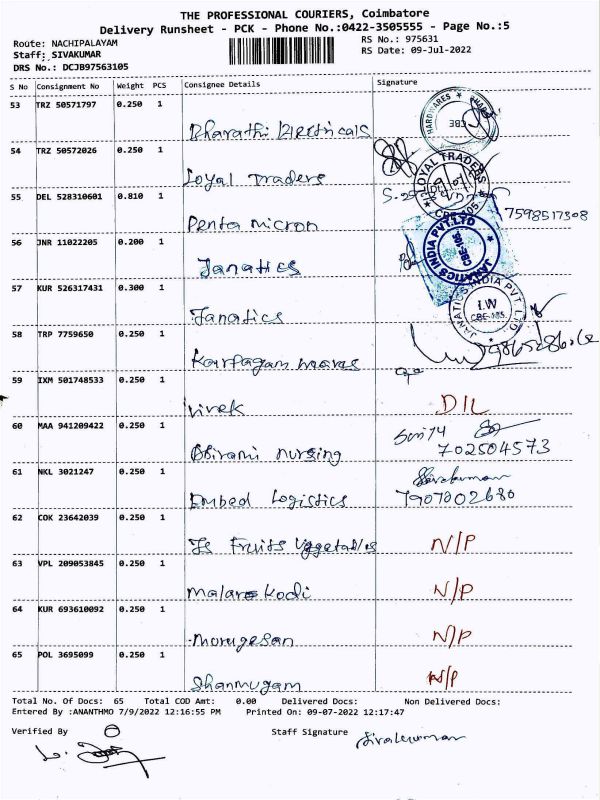 THE PROFESSIONAL COURIERS, Coimbatore
Delivery Runsheet - PCK - Phone No.:0422-3505555 - Page No.:5
Route: NACHIPALAYAM
RS No.: 975631
Staff: SIVAKUMAR
RS Date: 09-Jul-2022
DRS No.: DCJB97563105
S No Consignment No Weight PCS Consignee Details Signature
53 TRZ 50571797 0.250 1
Bharathi Electricals
HARDWARES CBE
54 TRZ 50572026 0.250 1
Loyal Traders
LOYAL TRADERS CBE-105
55 DEL 528310601 0.810 1
Penta Micron
7598517308
56 JNR 11022205 0.200 1
Janatics
JANATICS INDIA PVT.LTD CBE-105
57 KUR 526317431 0.300 1
Janatics
JANATICS INDIA PVT LTD I.W CBE-105
58 TRP 7759650 0.250 1
Karpagam
59 IXM 501748533 0.250 1
Vivek D/L
60 MAA 941209422 0.250 1
Abirami nursing
702504573
61 NKL 3021247 0.250 1
Sivakumar
Embed Logistics 7907002680
62 COK 23642039 0.250 1
Js Fruits Vggetables N/P
63 VPL 209053845 0.250 1
Malar Kodi N/P
64 KUR 693610092 0.250 1
Morugesan N/P
65 POL 3695099 0.250 1
Shanmugam N/P
Total No. Of Docs: 65 Total COD Amt: 0.00 Delivered Docs: Non Delivered Docs:
Entered By :ANANTHMO 7/9/2022 12:16:55 PM Printed On: 09-07-2022 12:17:47
Verified By Staff Signature Sivakumar